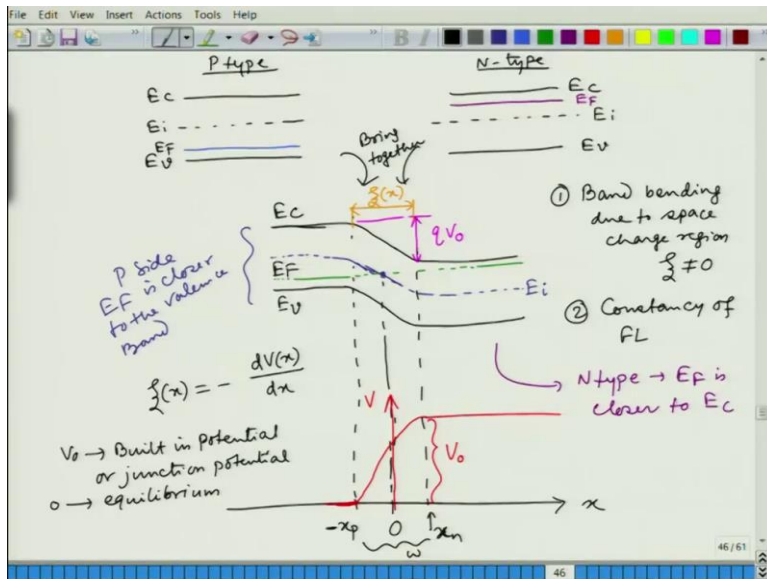 File Edit View Insert Actions Tools Help
P type
N-type
Ec
Ei
EF
Ev
Ec
EF
Ei
Ev
Bring
together
ξ(x)
Ec
qV₀
EF
Ev
Ei
P side
EF is closer
to the valence
Band
① Band bending
due to space
charge region
ξ ≠ 0
② Constancy of
FL
N type → EF is
closer to Ec
ξ(x) = - dV(x)/dx
V₀ → Built in potential
or junction potential
0 → equilibrium
V
V₀
x
-xp 0 xn
w
46/61
46